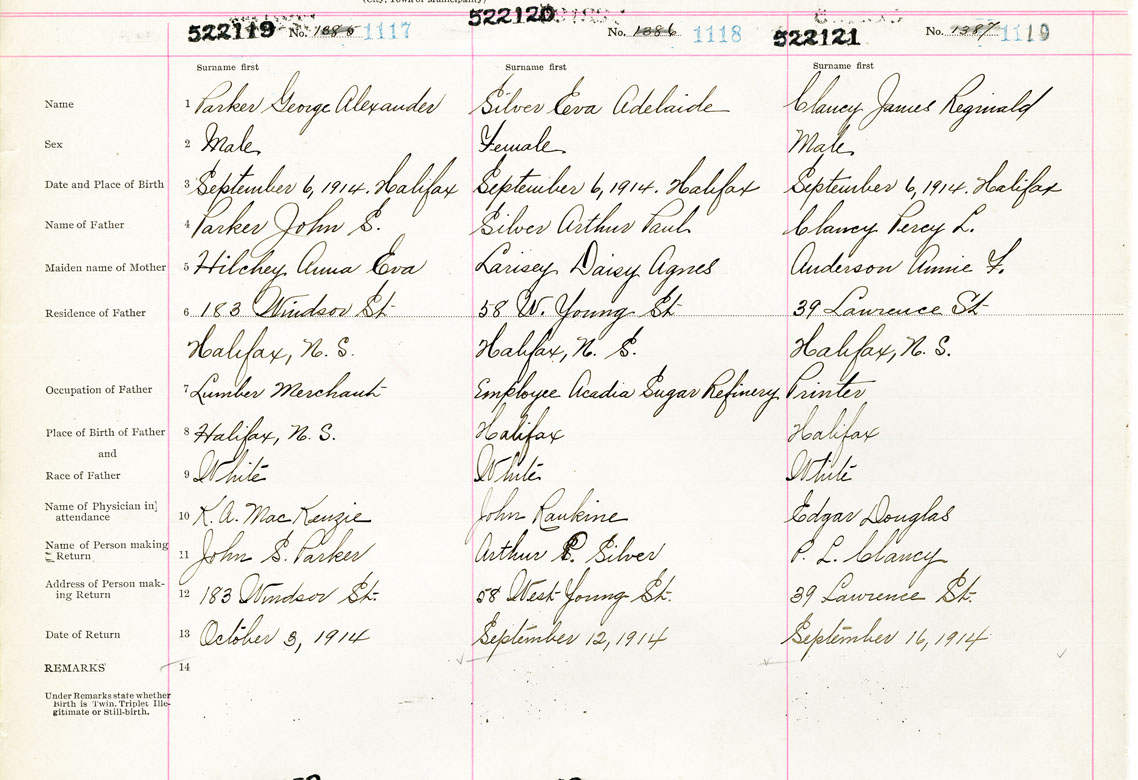 (City, Town or Municipality)
522119 No. 1385 1117 522120 No. 1386 1118 522121 No. 1387 1119
Surname first Surname first Surname first
Name 1 Parker George Alexander Silver Eva Adelaide Clancy James Reginald
Sex 2 Male Female Male
Date and Place of Birth 3 September 6, 1914. Halifax September 6, 1914. Halifax September 6, 1914. Halifax
Name of Father 4 Parker John S. Silver Arthur Paul Clancy Percy L.
Maiden name of Mother 5 Hilchey Anna Eva Larisey Daisy Agnes Anderson Annie F.
Residence of Father 6 183 Windsor St 58 W. Young St 39 Lawrence St
Halifax, N. S. Halifax, N. S. Halifax, N. S.
Occupation of Father 7 Lumber Merchant Employee Acadia Sugar Refinery Printer
Place of Birth of Father 8 Halifax, N. S. Halifax Halifax
and
Race of Father 9 White White White
Name of Physician in
attendance 10 K. A. MacKenzie John Rankine Edgar Douglas
Name of Person making
Return 11 John S. Parker Arthur P. Silver P. L. Clancy
Address of Person mak-
ing Return 12 183 Windsor St. 58 West Young St. 39 Lawrence St.
Date of Return 13 October 3, 1914 September 12, 1914 September 16, 1914
REMARKS 14
Under Remarks state whether
Birth is Twin, Triplet Ille-
gitimate or Still-birth.